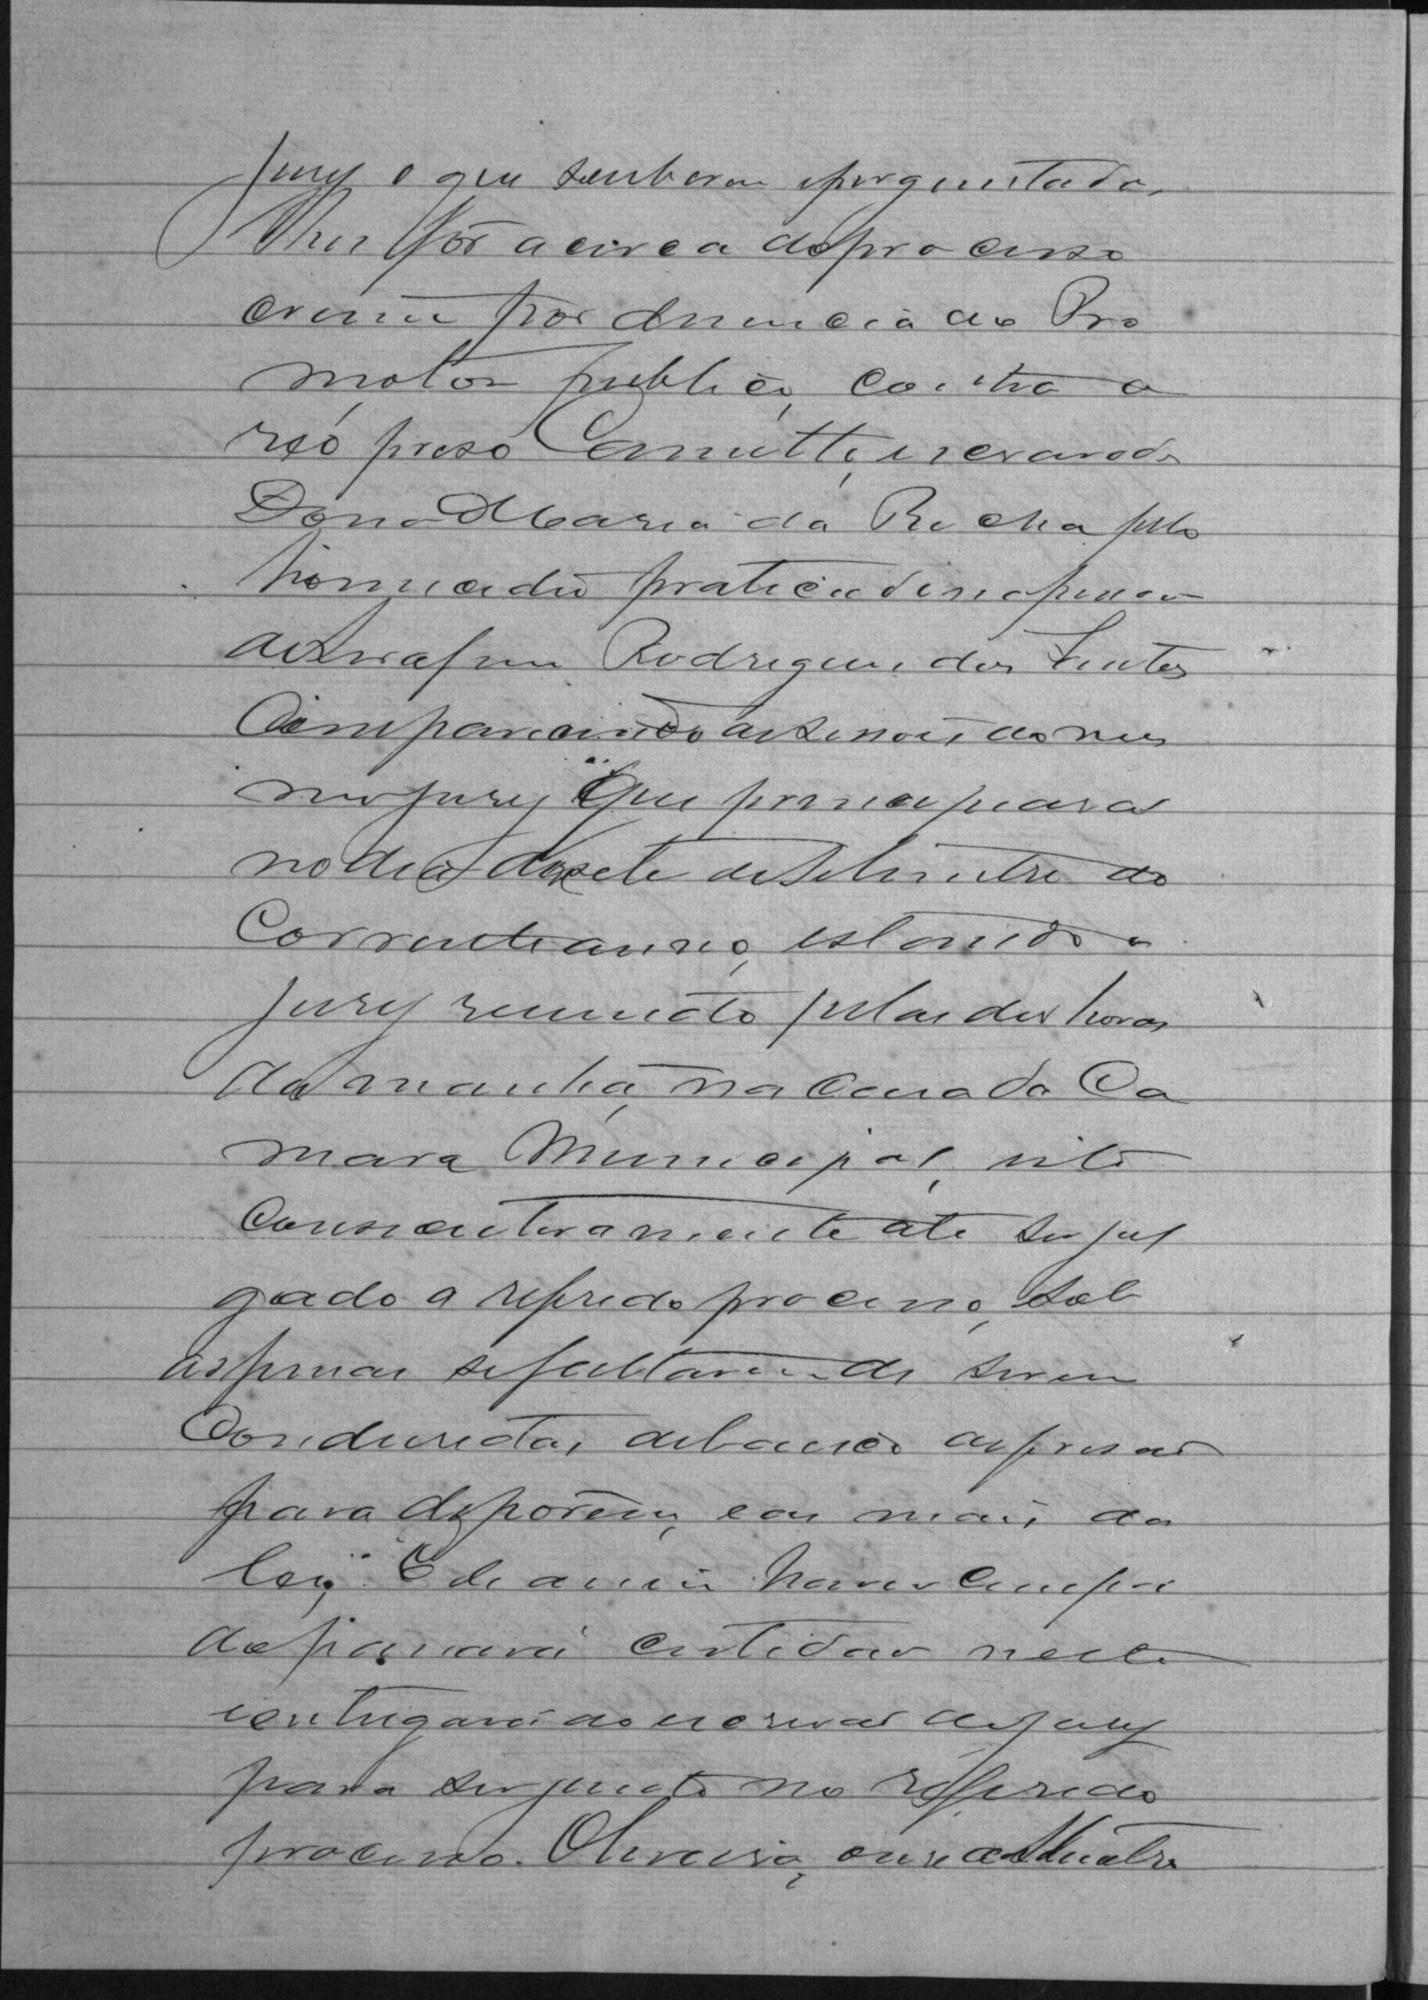 jury o que souberem e perguntado
lhes fôr a cerca do processo
crime por denuncia do Pro
motor publico, contra o
réo preso Camillo, escravo de
Dona Maria da Rocha pelo
homicidio praticado na pessoa
de Rodrigues dos Santos
Comparecendo as sessões do mes
mo jury que principiará
no dia de Setembro do
Corrente anno, estando o
jury reunido pelas dez horas
da manhã, na casa da Ca
mara Municipal, isto
consecutivamente até ser jul
gado o referido processo, sob
as penas se faltarem de serem
Conduzidas debaixo de prisão
para deporem, e as mais da
ley. E de assim haver cumpri
do passará certidão neste
e entregará ao escrivão do jury
para ser junto no referido
processo. Oliveira,